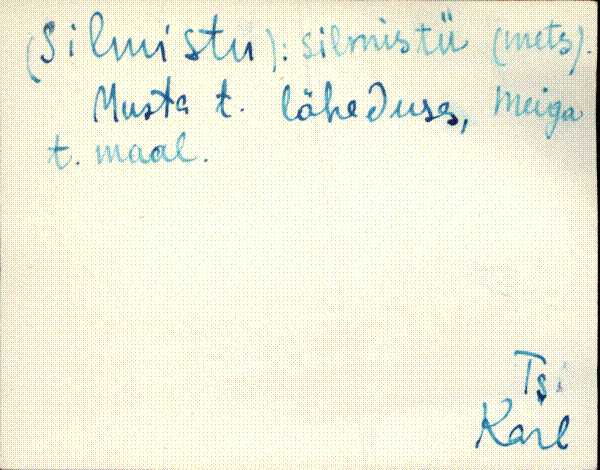 (Silmistu): silmistü (mets).
Musta t. läheduses, Meiga
t. maal.
Karl